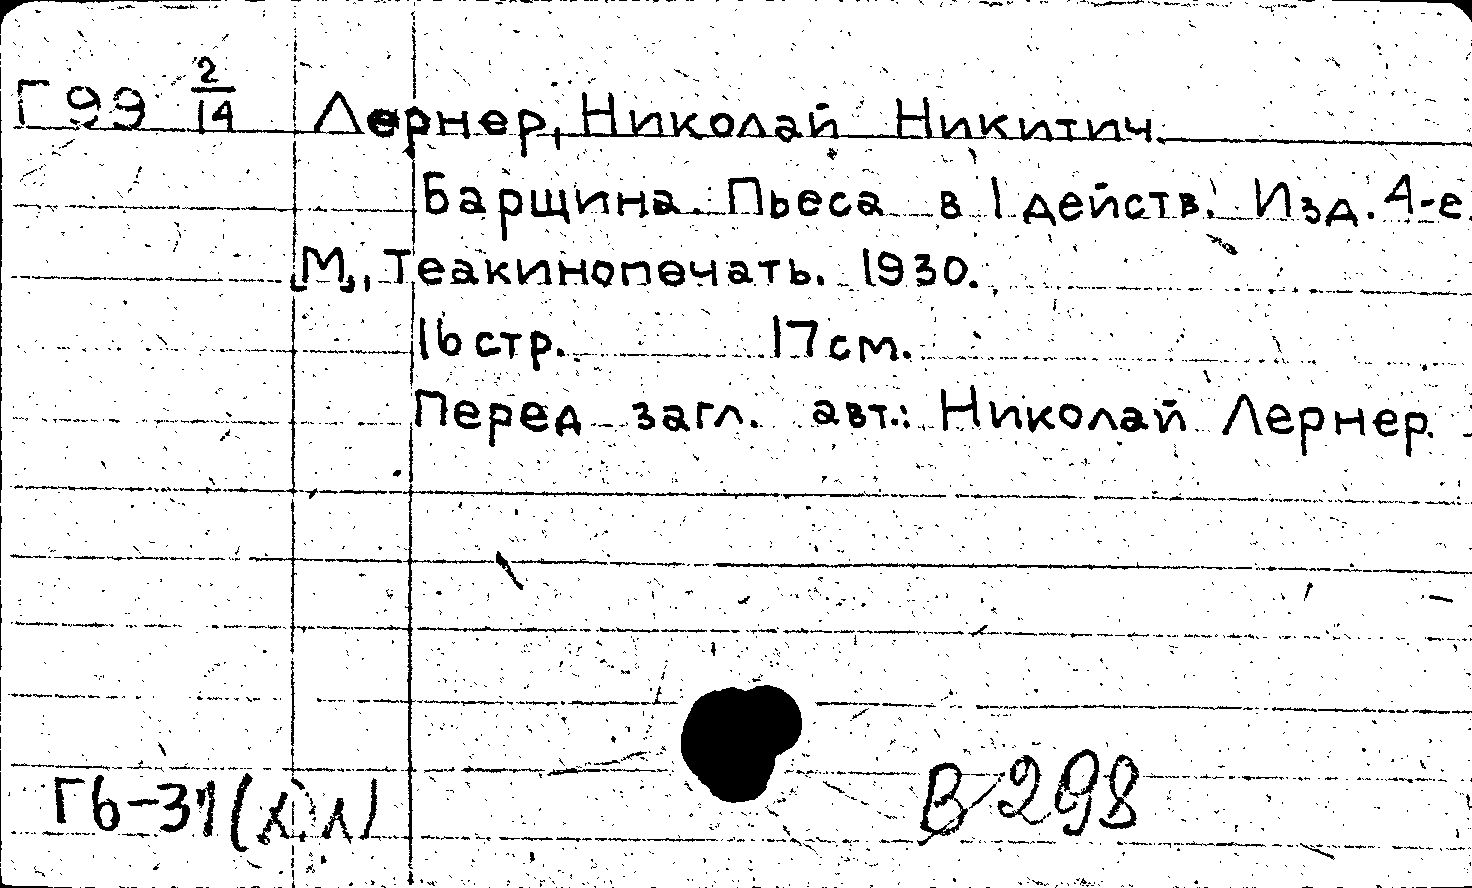 Г 99 2/14 Лернер, Николай Никитич.
Барщина. Пьеса в 1 действ. Изд. 4-е.
[М], Теакинопечать. 1930.
16 стр. 17 см.
Перед загл. авт.: Николай Лернер.
Г6-31 (х.л)
В 298